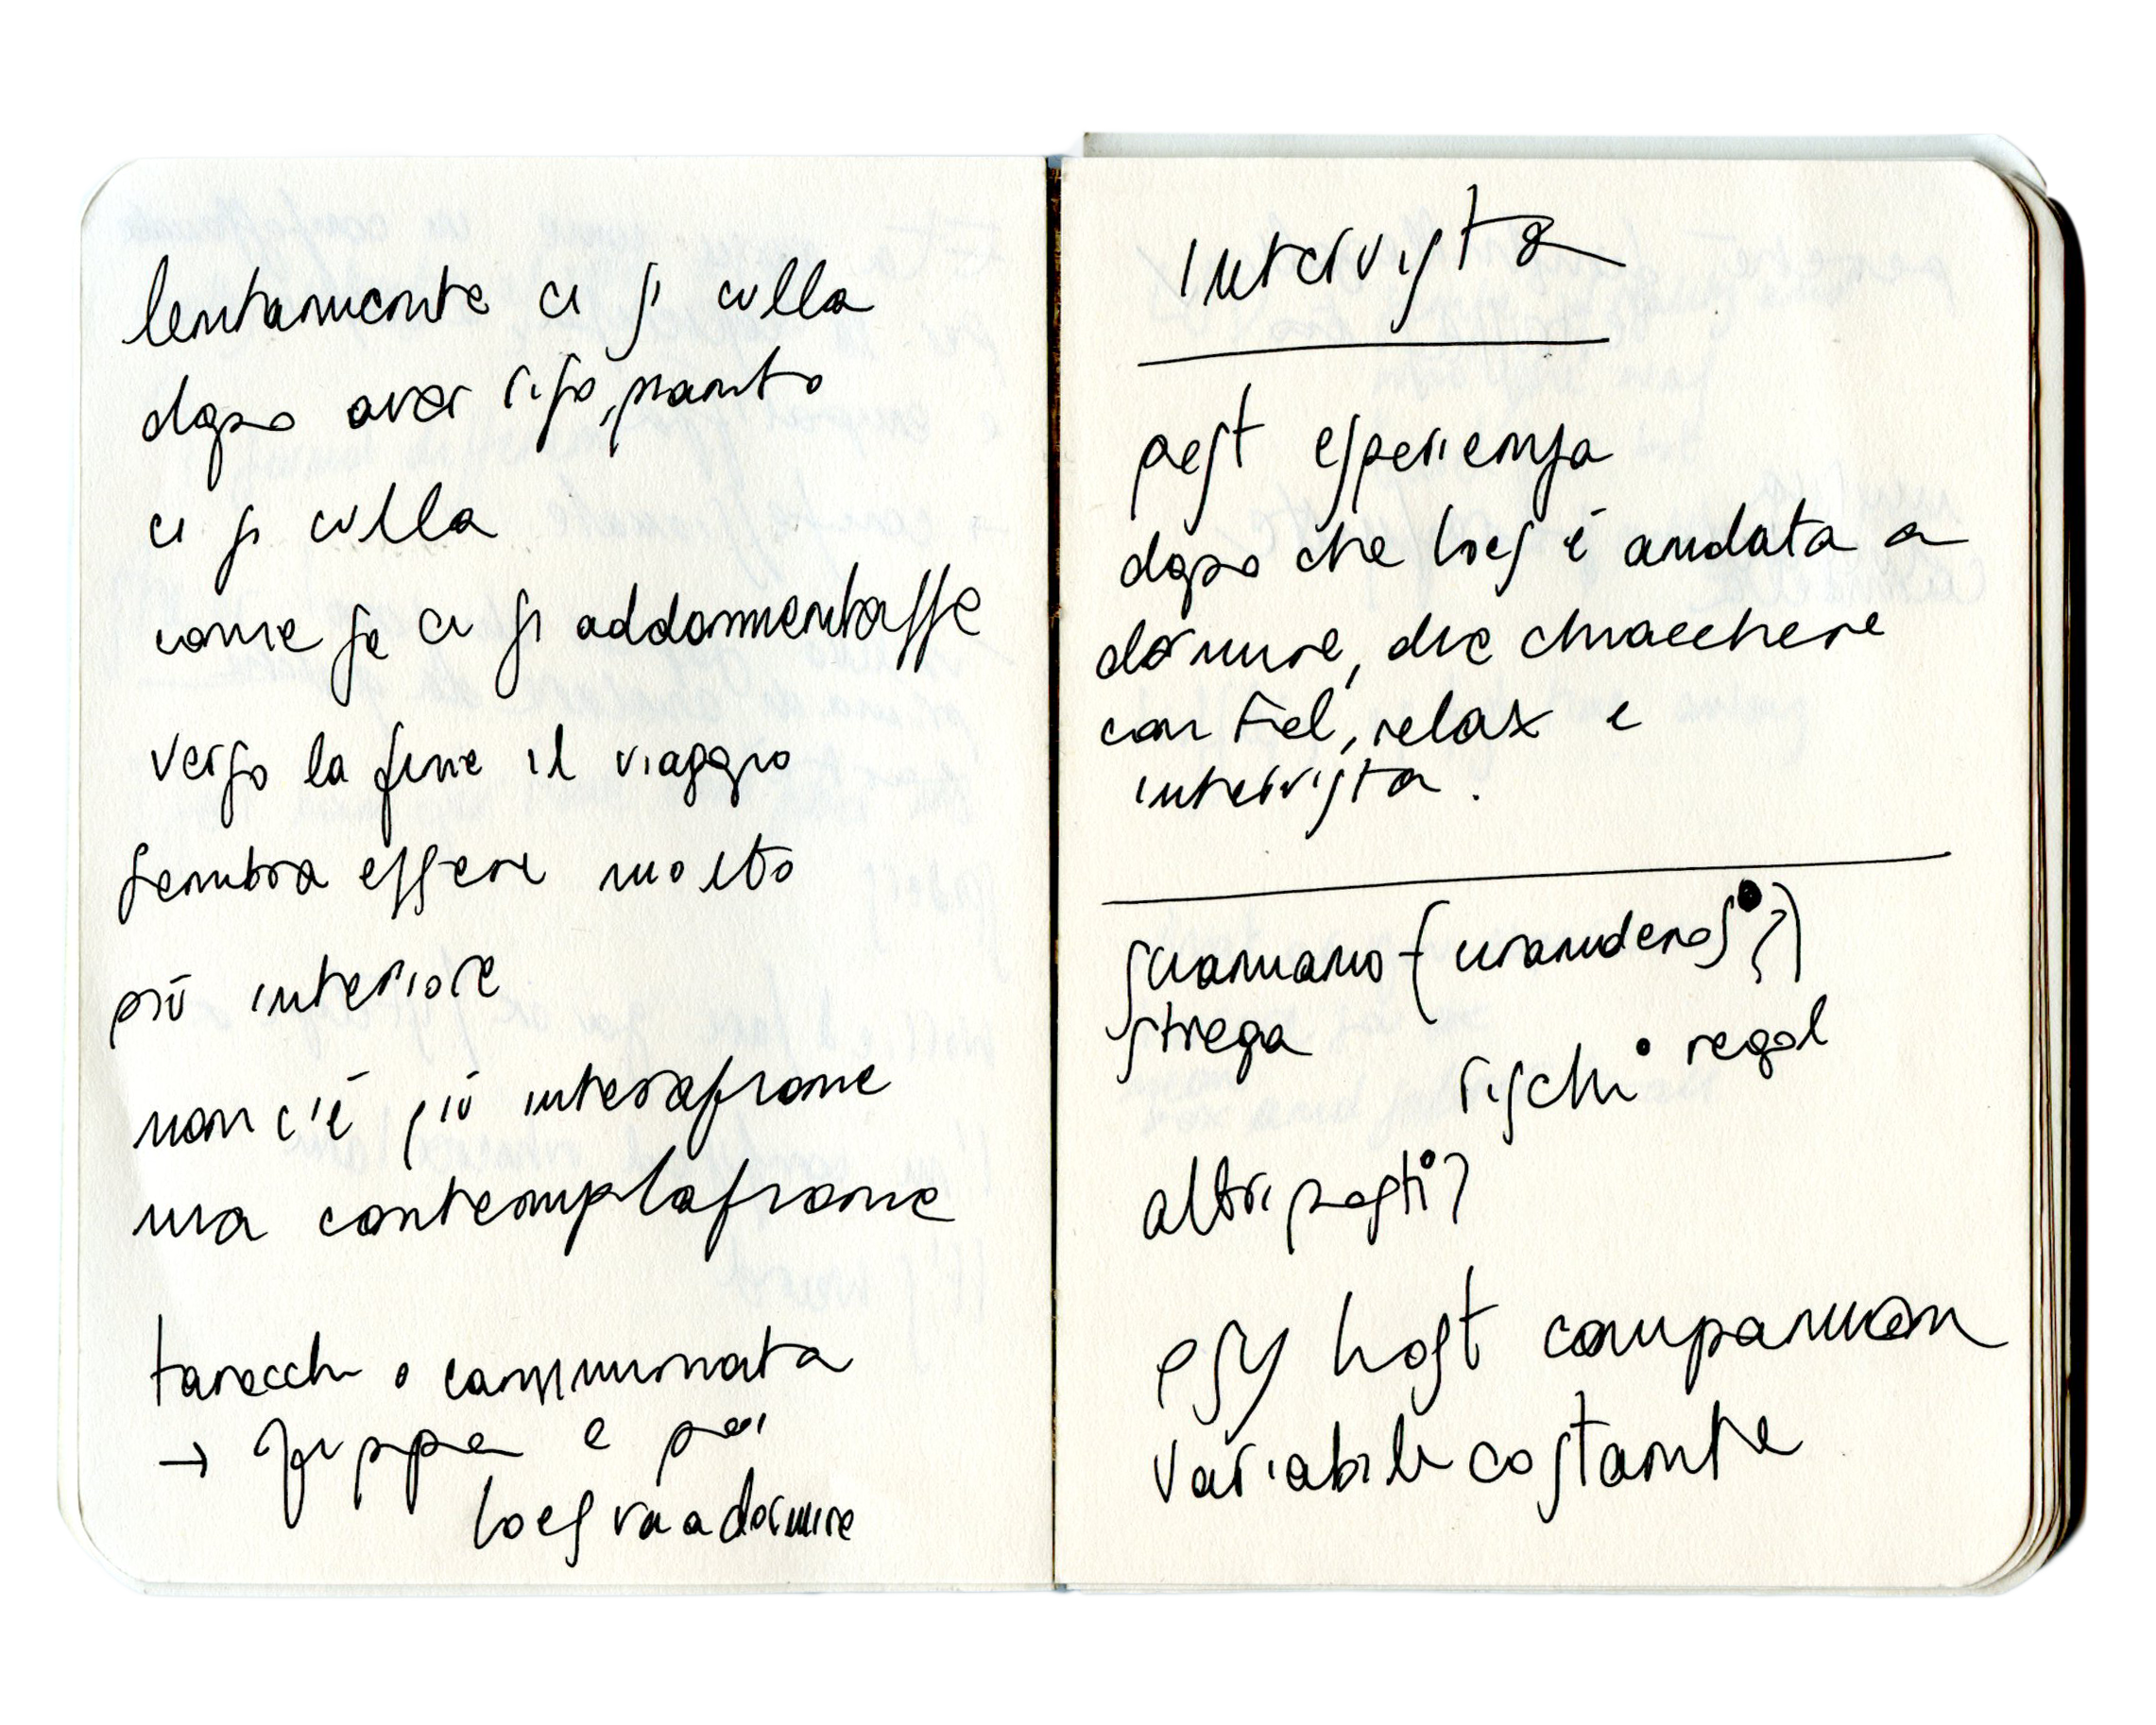 lentamente ci si culla
dopo aver riso, pianto
ci si culla
come se ci si addormentasse
verso la fine il viaggio
sembra essere molto
più interiore
non c'è più interazione
ma contemplazione
tarocchi • camminata
→ zuppa e poi
loes va a dormire
Intervista
post esperienza
dopo che loes è andata a
dormire, due chiacchere
con Fel, relax e
intervista.
sciamano - (curanderos?)
strega
rischi • regol
altri posti?
psy host companion
variabile costante